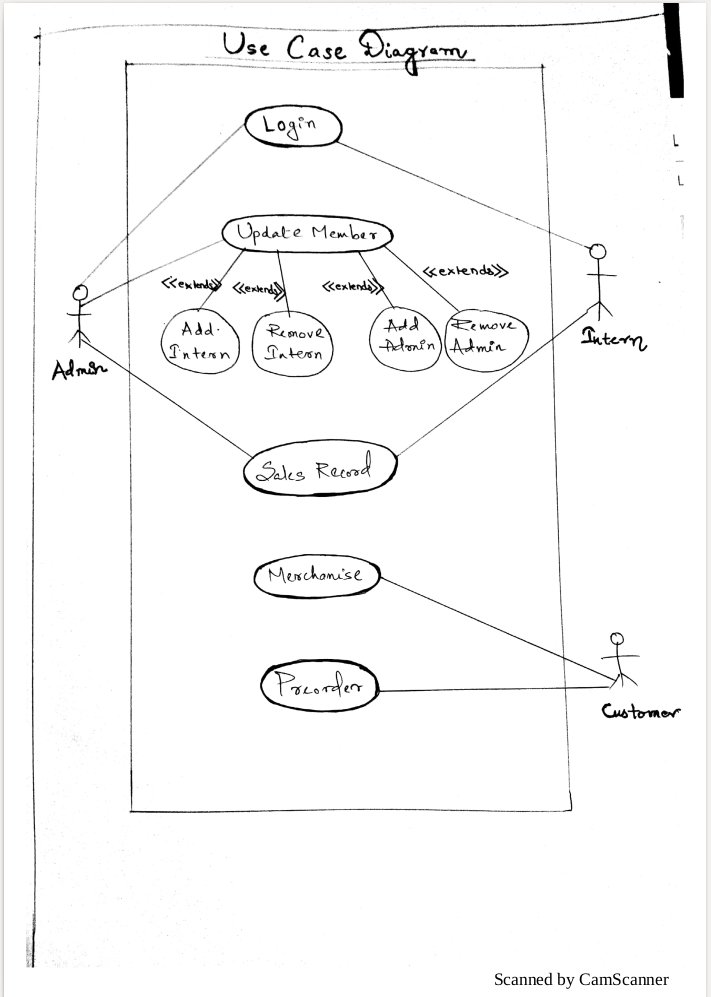 Use Case Diagram
Login
Update Member
<<extends>>
<<extends>>
<<extends>>
<<extends>>
Add
Intern
Remove
Intern
Add
Admin
Remove
Admin
Admin
Intern
Sales Record
Merchanise
Preorder
Customer
Scanned by CamScanner